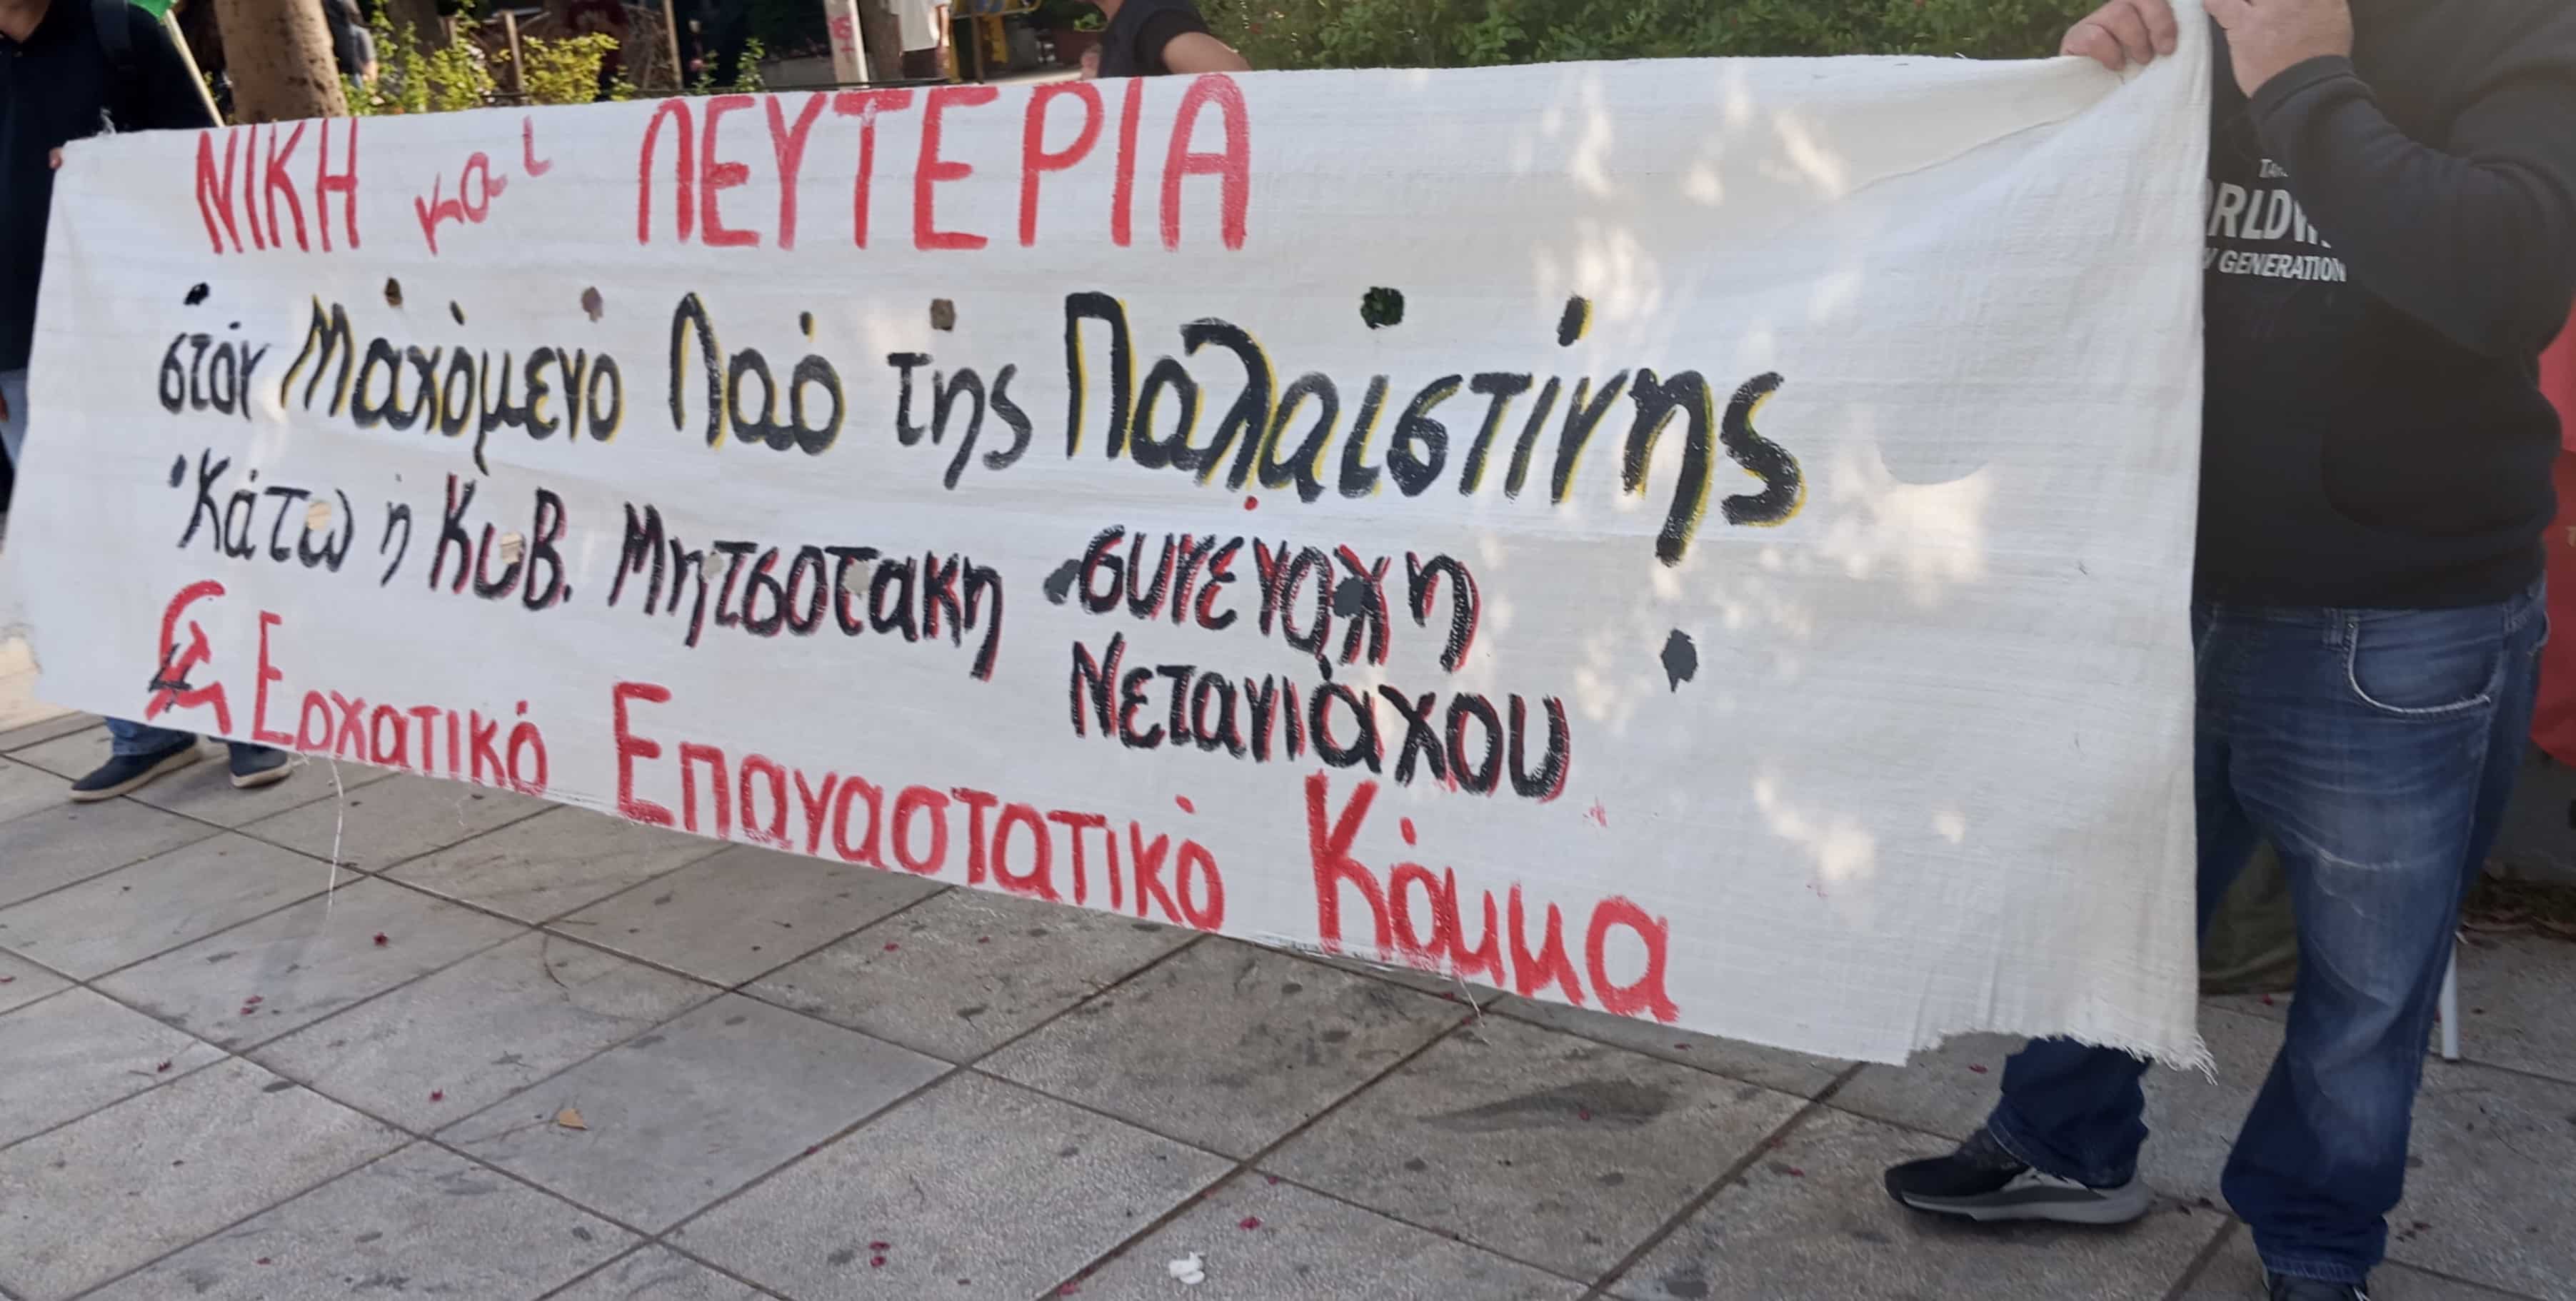 ΝΙΚΗ και ΛΕΥΤΕΡΙΑ
στόν Μαχόμενο Λαό της Παλαιστίνης
Κάτω ή Κυβ. Μητσοτακη - συνένοχη
Νετανιάχου
Εργατικό Επαναστατικό Κόμμα
GENERATION